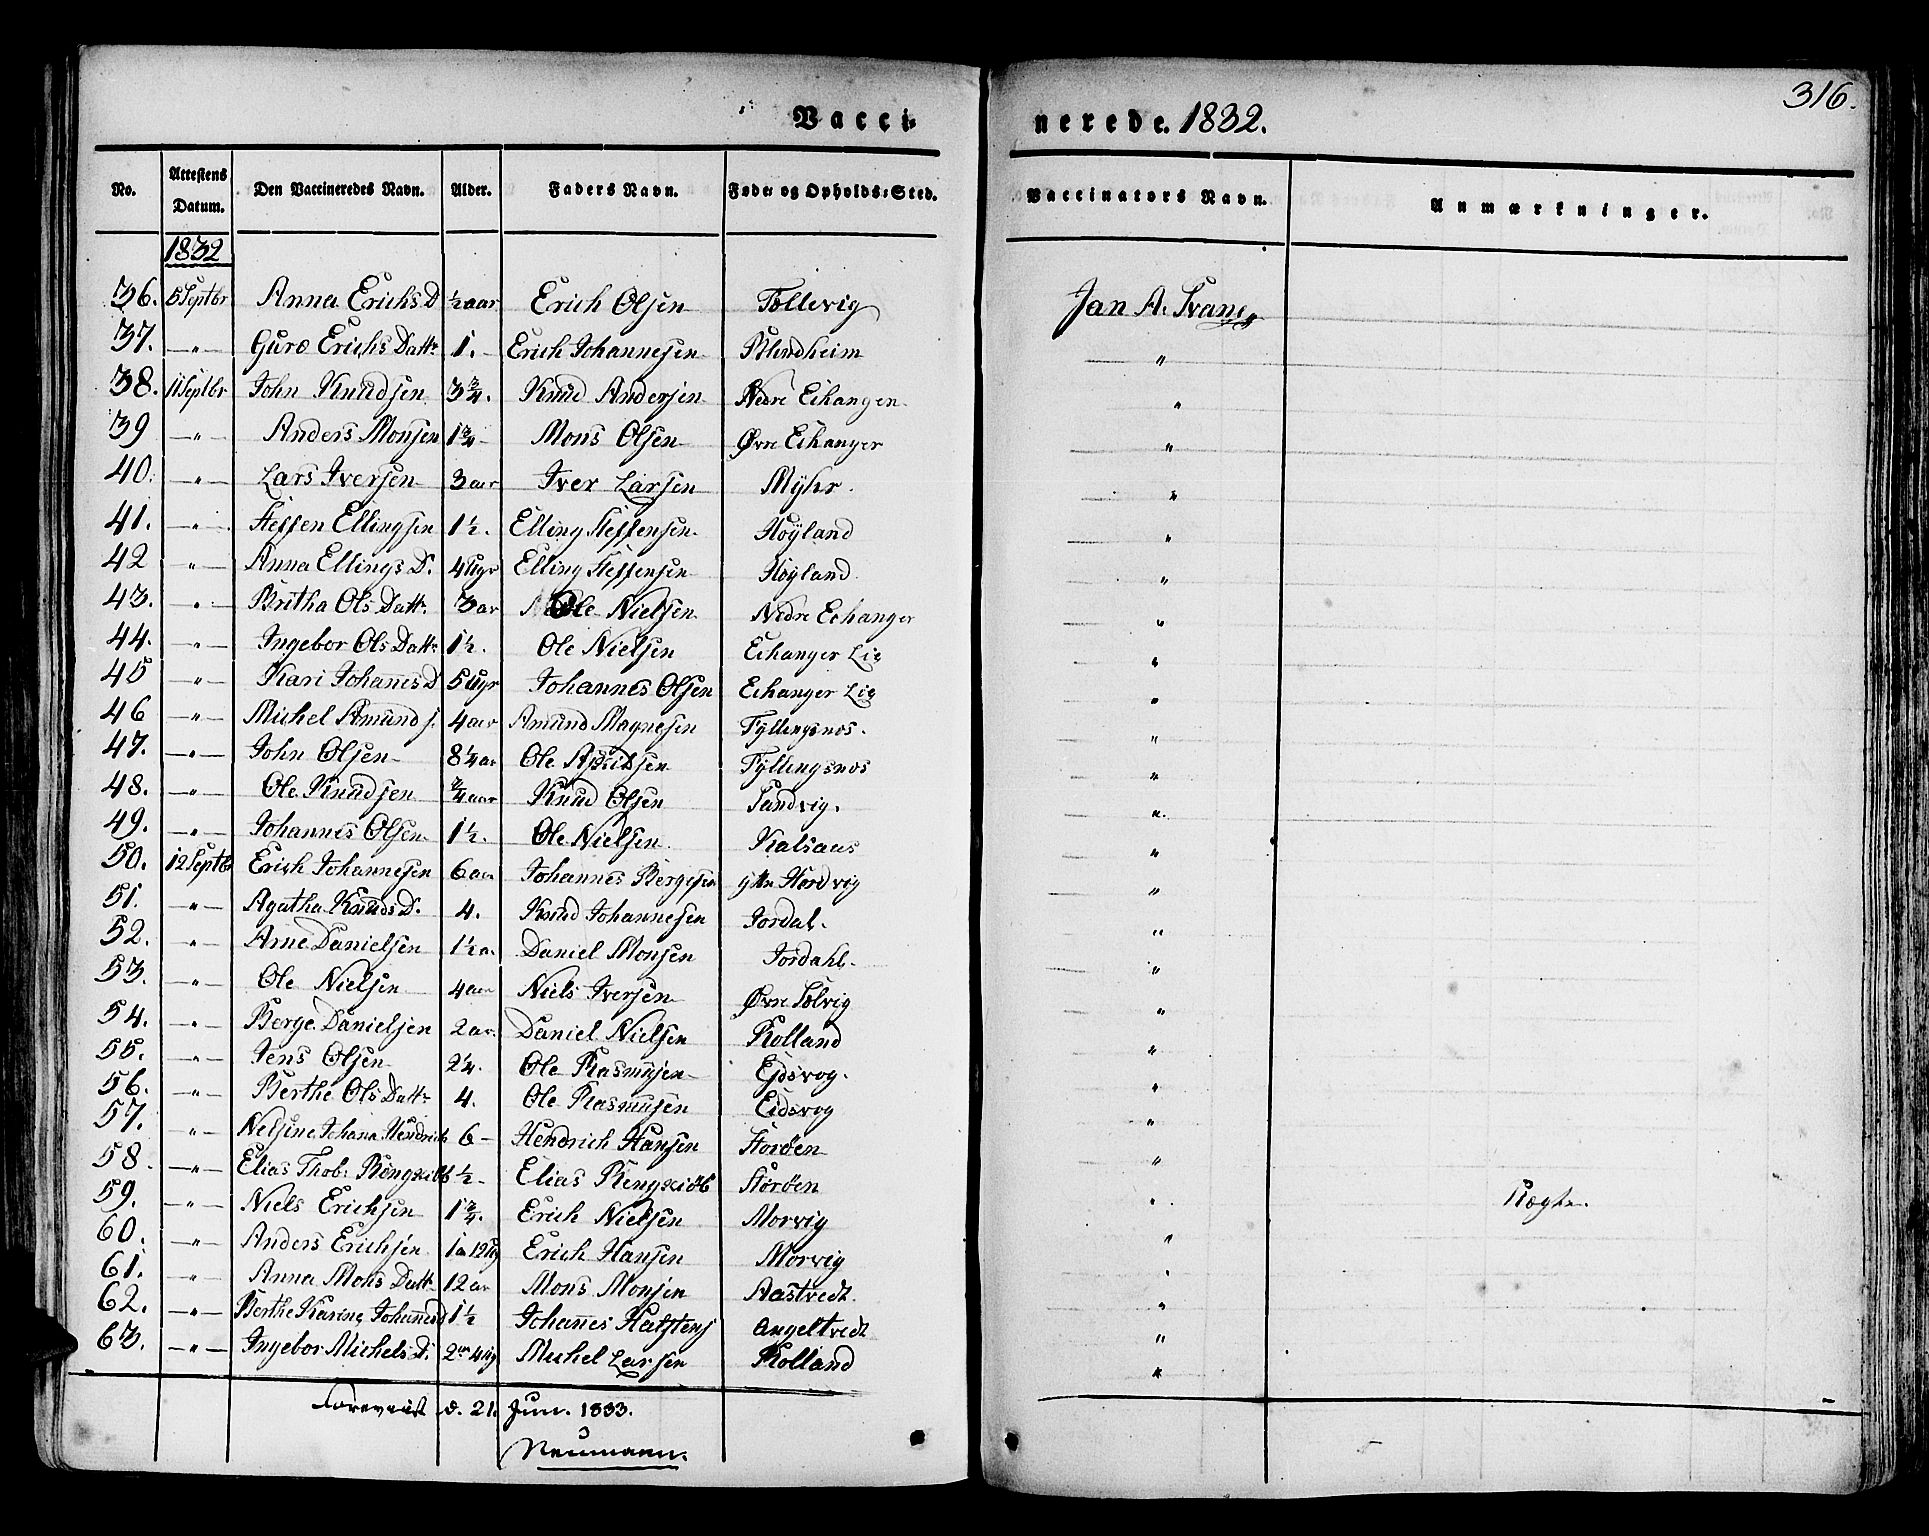 316.
Vacci-
nerede. 1832.
No. Attestens Datum. Den Vaccineredes Navn. Alder. Faders Navn. Føde- og Opholds-Sted. Vaccinators Navn. Anmærkninger.
1832
36. 5 Septbr Anna Erichs D ½ aar Erich Olsen Tollevig Jan A. Svane
37. —"— Guro Erichs Dattr 1. Erich Johannesen Blindheim "
38. 11 Septbr John Knudsen 3¾. Knud Andersen Nedre Echangen "
39 —"— Anders Monsen 1¾ Mons Olsen Øvre Echanger "
40. —"— Lars Iversen 3 aar Iver Larsen Myhr. "
41. —"— Steffen Ellingsen 1½. Elling Steffensen Høyland "
42 —"— Anna Ellings D. 4 Ugr Elling Steffensen Høyland "
43. —"— Britha Ols Dattr. 3 ar Ole Nielsen Nedre Echanger "
44. —"— Ingebor Ols Dattr 1½. Ole Nielsen Echanger Lie "
45 —"— Kari Johanes D 5 Ugr Johannes Olsen Echanger Lie "
46 —"— Michel Amunds. 4 aar Amund Magnesen Fyllingsnos. "
47. —"— John Olsen 8¼ ar Ole Fyllingsnos "
48. —"— Ole Knudsen ¾ aar Knud Olsen Sandvig. "
49. —"— Johannes Olsen 1½. Ole Nielsen Kalsaas "
50. 12 Septbr Erich Johannesen 6 aar Johannes Bergesen yttre Hordvig "
51. —"— Agatha Knuds D. 4. Knud Johannesen Jordal. "
52. —"— Arne Danielsen 1½ a. Daniel Monsen Jordahl. "
53. —"— Ole Nielsen 4 aar Niels Iversen Øvre Tolvig "
54. —"— Berge Danielsen 2 ar. Daniel Nielsen Rolland "
55. —"— Jens Olsen 2¼. Ole Rasmusen Ejdsvog. "
56. —"— Berthe Ols Dattr 4. Ole Rasmusen Eidsvog "
57. —"— Nelsine Johana Hendrich 6 Hendrich Hansen Storøen "
58. —"— Elias Thob: ½ Elias Storøen "
59. —"— Niels Erichsen 1¾. Erich Nielsen Morvig " Nægte.
60. —"— Anders Erichsen 1 a 12 Ug Erich Hansen Morvig "
61. —"— Anna Mons Dattr 12 ar Mons Monsen Aastvedt. "
62. —"— Berthe Karine Johannes d 1½ Johanes Halstens Angeltvedt "
63. —"— Ingebor Michels D. 2 ar 4 Ug Michel Larsen Rolland "
Forevist d. 21. Jun. 1833.
Neumann.